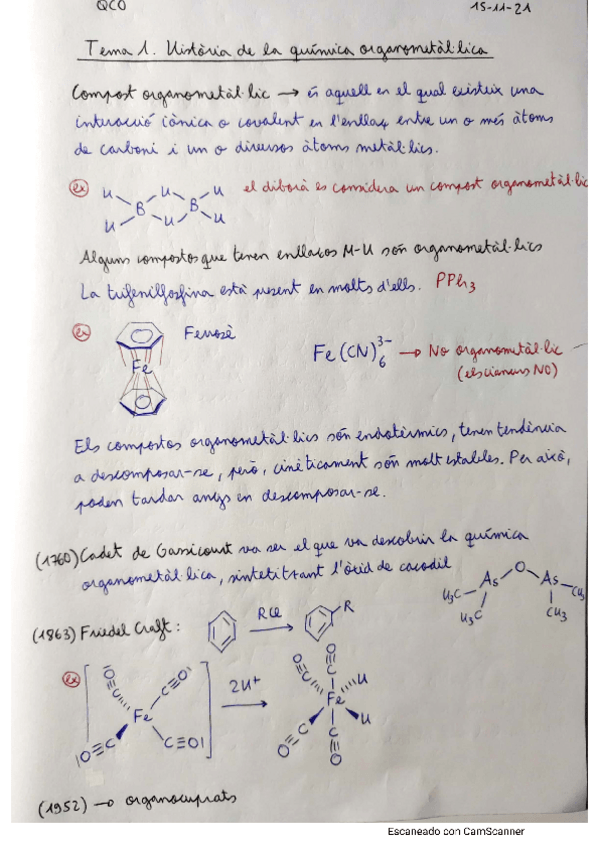 QCO 15-11-21
Tema 1. Història de la química organometàl·lica
Compost organometàl·lic → és aquell en el qual existeix una
interacció iònica o covalent en l'enllaç entre un o més àtoms
de carboni i un o diversos àtoms metàl·lics.
ex H H H B B H H H el diborà es considera un compost organometàl·lic
Alguns compostos que tenen enllaços M-H són organometàl·lics
La trifenilfosfina està present en molts d'ells. PPh3
ex Fe Ferrocè Fe(CN)6 3- → No organometàl·lic
(els cianurs NO)
Els compostos organometàl·lics són endotèrmics, tenen tendència
a descomposar-se, però, cinèticament són molt estables. Per això,
poden tardar anys en descomposar-se.
(1760) Cadet de Gassicourt va ser el que va descobrir la química
organometàl·lica, sintetitzant l'òxid de cacodil
H3C As O As CH3
H3C CH3
(1863) Friedel Craft: RCl → R
ex [Fe C≡O C≡O C≡O C≡O] 2H+ → Fe H H C≡O C≡O C≡O C≡O
(1952) → organocuprats
Escaneado con CamScanner